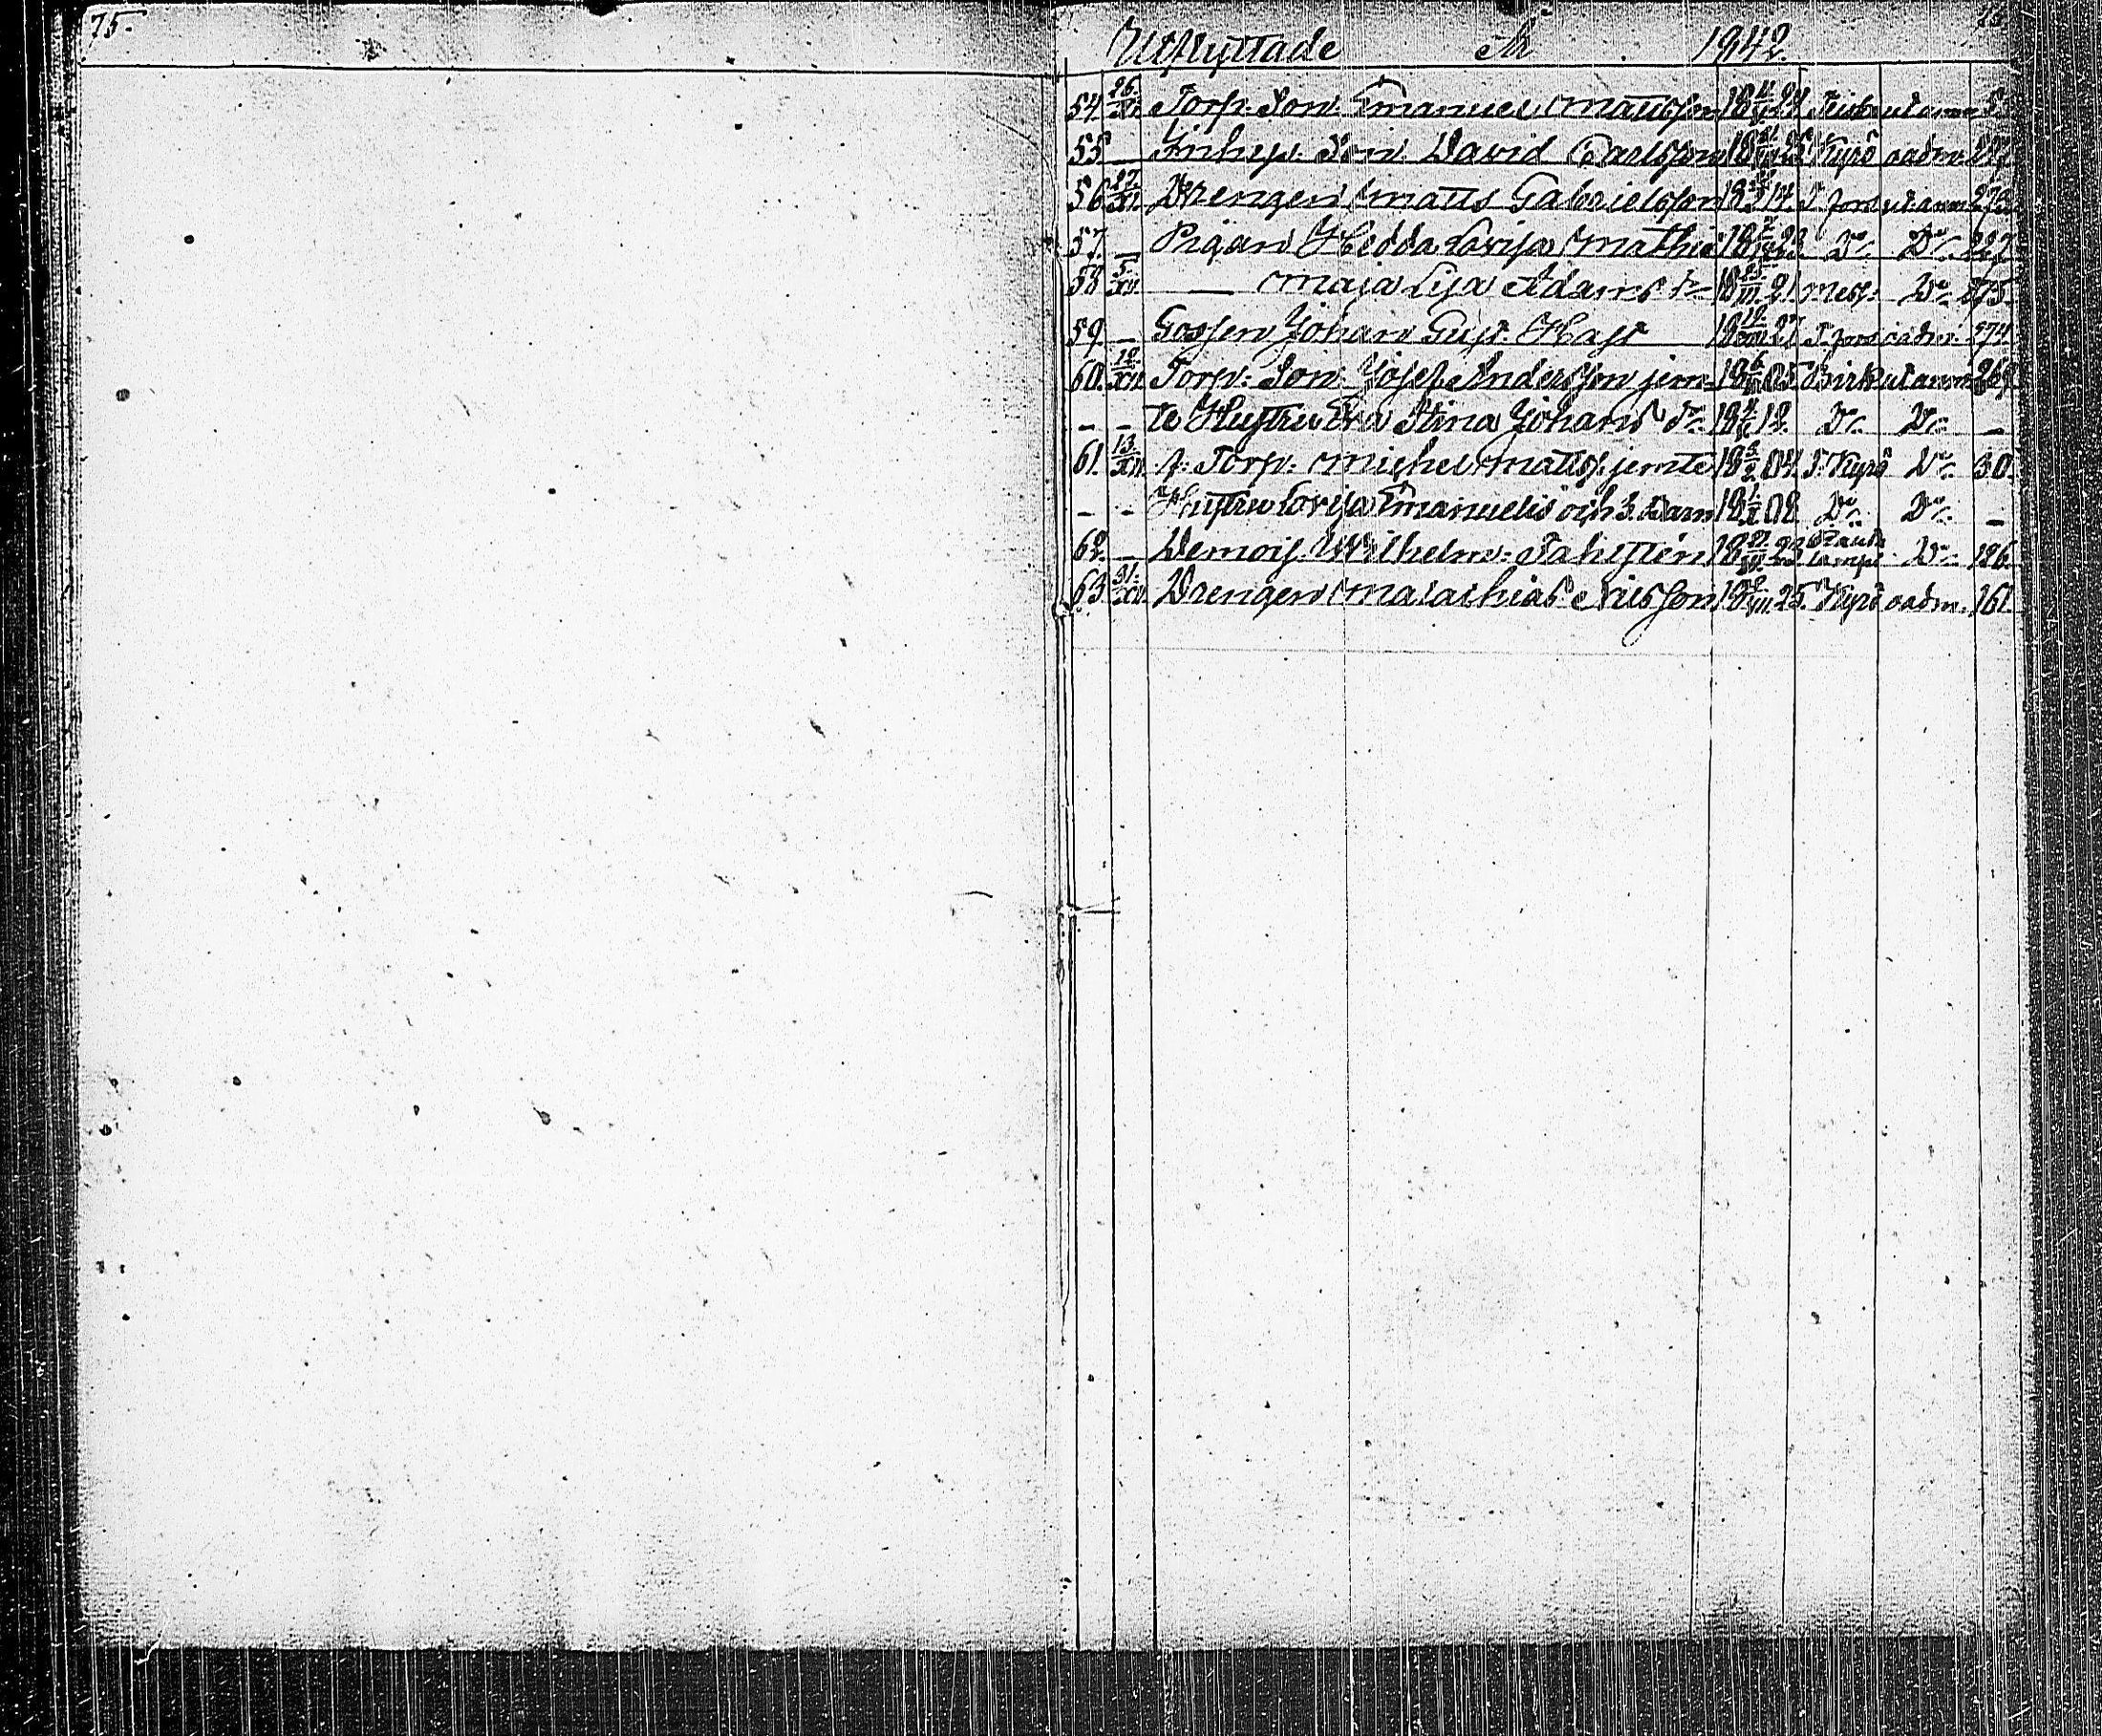 75.
Utflyttade År 1842.
54. 26/XI. Torp: Son: Emanuel Mattsson 18 24 utan 
55 — Son David Carlsson 18 Kyrö oadm. 
56 27/XI. Drengen Matts Gabrielsson 18 14. T. fors utan 273
57. — Pigan Hedda Lovisa Mathie 18 23. Do. Do. 227.
58 5/XII. — Maja Lisa Adams dr 18 25/III. 21. Mesf: Do. 275.
59. — Gossen Johan Gust. Hast 18 19/ 27 T. fors oadm. 274.
60. 12/XII. Torp: Son Josef Andersson jem- 18 6/ 05. Birk utan 269.
— — te Hustru Eva Stina Johans dr. 18 4/ 12. Do. Do. —
61. 13/XII. f: Torp: Michel Matts. jemte 18 5/ 04. T. Kyrö Do. 30.
— — Hustru Lovisa Emanuels och 3. Barn 18 1/X. 02. Do. Do. —
62. — Demois. Wilhelm: Tahlsten 18 23 Do. 126.
63 31/XII. Drengen Malachias Nilsson 18 /VIII. 25. Kyrö oadm. 161.